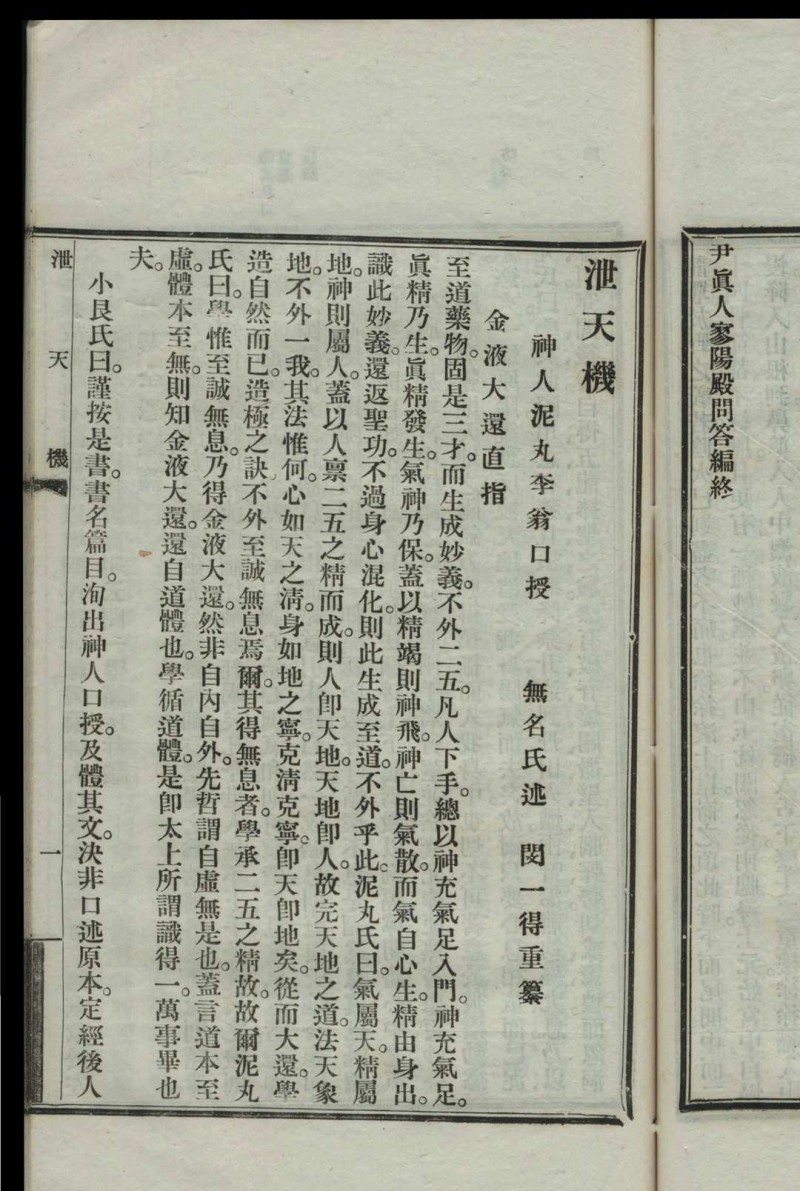 尹眞人寥陽殿問答編終
泄天機
神人泥丸李翁口授　無名氏述　閔一得重纂
金液大還直指
至道藥物。固是三才。而生成妙義。不外二五。凡人下手。總以神充氣足入門。神充氣足。
眞精乃生。眞精發生。氣神乃保。蓋以精竭則神飛。神亡則氣散。而氣自心生。精由身出。
識此妙義。還返聖功。不過身心混化。則此生成至道。不外乎此。泥丸氏曰。氣屬天。精屬
地。神則屬人。蓋以人禀二五之精而成。則人卽天地。天地卽人。故完天地之道。法天象
地。不外一我。其法惟何。心如天之淸。身如地之寧。克淸克寧。卽天卽地矣。從而大還。學
造自然而已。造極之訣。不外至誠無息焉爾。其得無息者。學承二五之精故。故爾泥丸
氏曰。學惟至誠無息。乃得金液大還。然非自內自外。先哲謂自虛無是也。蓋言道本至
虛。體本至無。則知金液大還。還自道體也。學循道體。是卽太上所謂識得一。萬事畢也
夫。
小艮氏曰。謹按是書。書名篇目。洵出神人口授。及體其文。決非口述原本。定經後人
泄　天　機　一